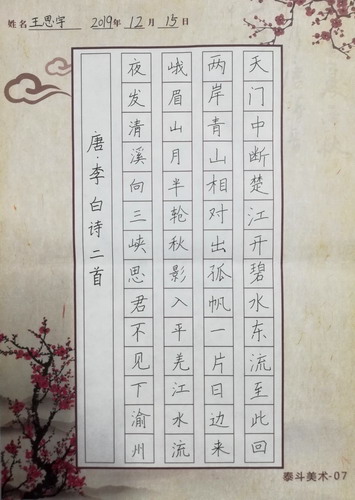 姓名 王思宇 2019年 12月 15日
天门中断楚江开碧水东流至此回
两岸青山相对出孤帆一片日边来
峨眉山月半轮秋影入平羌江水流
夜发清溪向三峡思君不见下渝州
唐·李白诗二首
泰斗美术-07